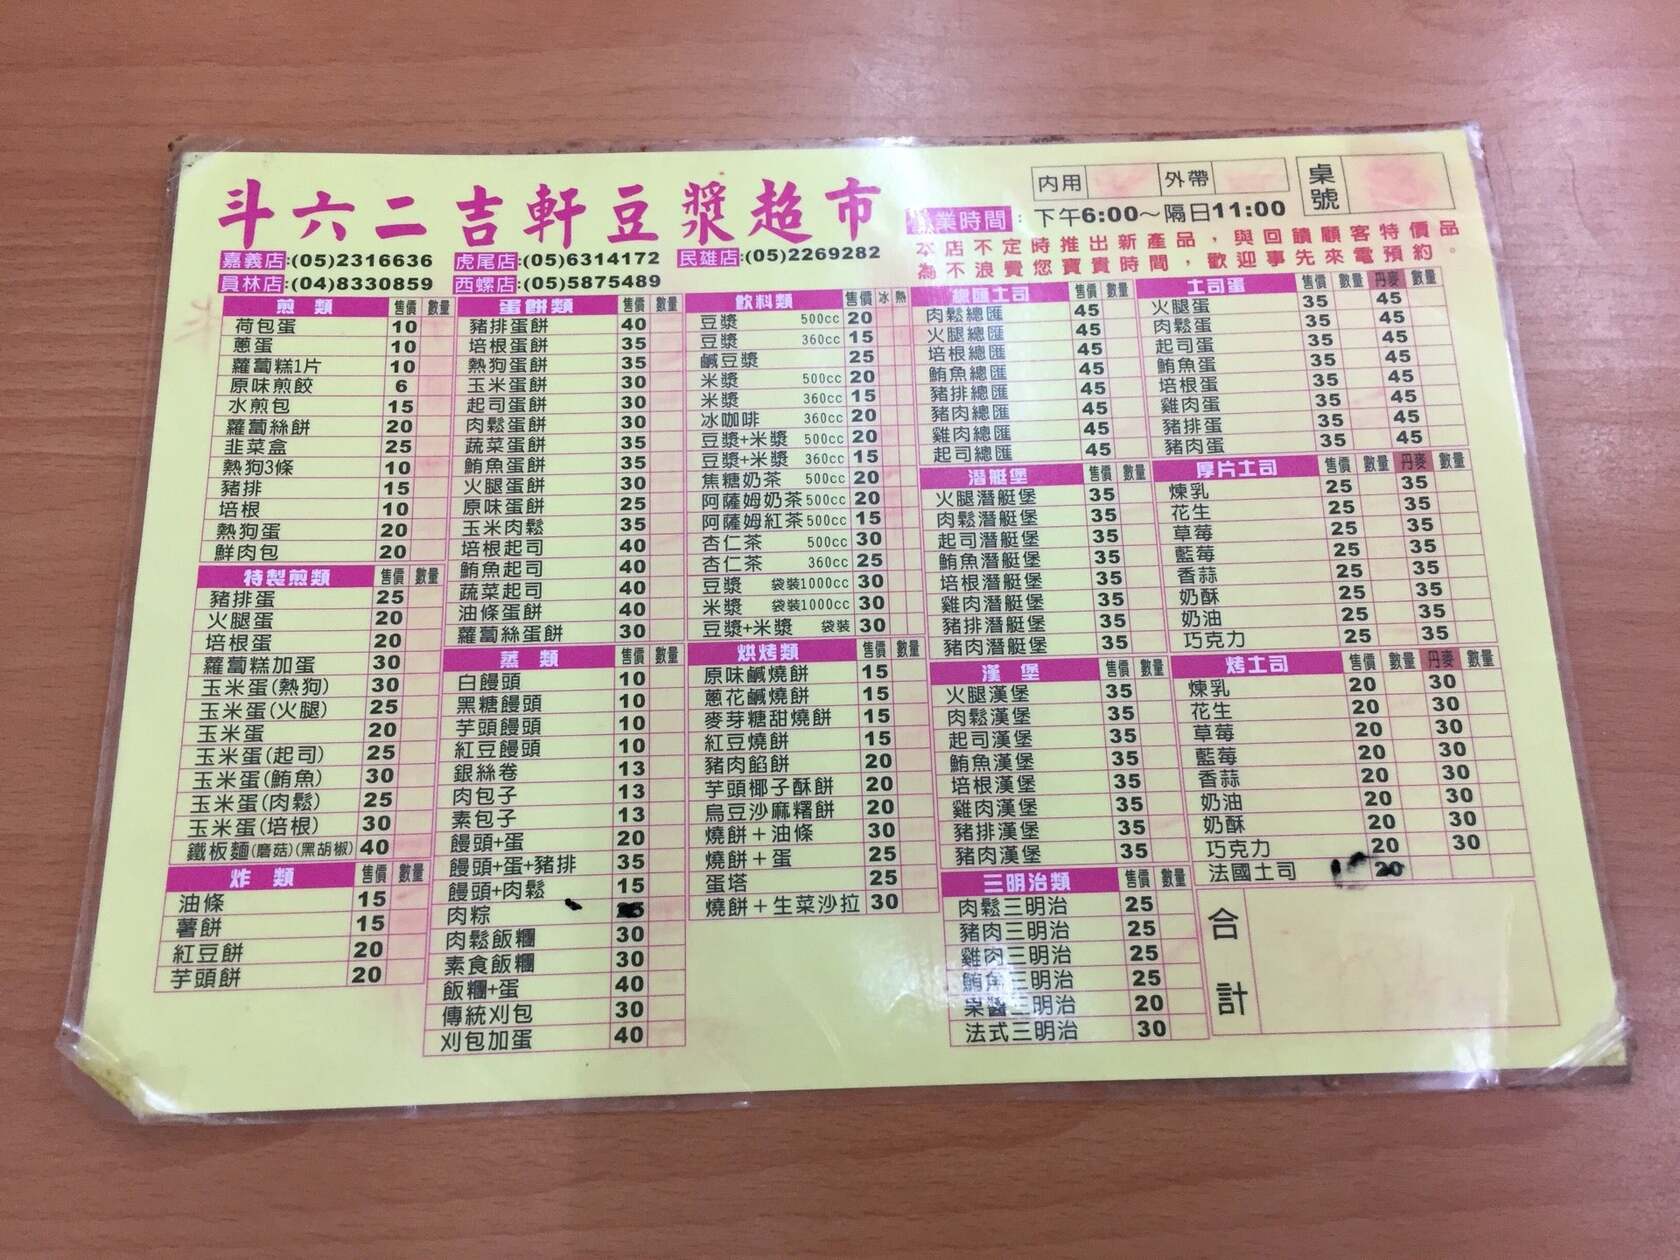 斗六二吉軒豆漿超市
內用 外帶 桌號
營業時間：下午6:00～隔日11:00
本店不定時推出新產品，與回饋顧客特價品
為不浪費您寶貴時間，歡迎事先來電預約。
嘉義店:(05)2316636 虎尾店:(05)6314172 民雄店:(05)2269282
員林店:(04)8330859 西螺店:(05)5875489
煎類 售價 數量
荷包蛋 10
蔥蛋 10
蘿蔔糕1片 10
原味煎餃 6
水煎包 15
蘿蔔絲餅 20
韭菜盒 25
熱狗3條 10
豬排 15
培根 10
熱狗蛋 20
鮮肉包 20
特製煎類 售價 數量
豬排蛋 25
火腿蛋 20
培根蛋 20
蘿蔔糕加蛋 30
玉米蛋(熱狗) 30
玉米蛋(火腿) 25
玉米蛋 20
玉米蛋(起司) 25
玉米蛋(鮪魚) 30
玉米蛋(肉鬆) 25
玉米蛋(培根) 30
鐵板麵(磨菇)(黑胡椒) 40
炸類 售價 數量
油條 15
薯餅 15
紅豆餅 20
芋頭餅 20
蛋餅類 售價 數量
豬排蛋餅 40
培根蛋餅 35
熱狗蛋餅 35
玉米蛋餅 30
起司蛋餅 30
肉鬆蛋餅 30
蔬菜蛋餅 35
鮪魚蛋餅 35
火腿蛋餅 30
原味蛋餅 25
玉米肉鬆 35
培根起司 40
鮪魚起司 40
蔬菜起司 40
油條蛋餅 40
蘿蔔絲蛋餅 30
蒸類 售價 數量
白饅頭 10
黑糖饅頭 10
芋頭饅頭 10
紅豆饅頭 10
銀絲卷 13
肉包子 13
素包子 13
饅頭+蛋 20
饅頭+蛋+豬排 35
饅頭+肉鬆 15
肉粽
肉鬆飯糰 30
素食飯糰 30
飯糰+蛋 40
傳統刈包 30
刈包加蛋 40
飲料類 售價 冰 熱
豆漿 500cc 20
豆漿 360cc 15
鹹豆漿 25
米漿 500cc 20
米漿 360cc 15
冰咖啡 360cc 20
豆漿+米漿 500cc 20
豆漿+米漿 360cc 15
焦糖奶茶 500cc 20
阿薩姆奶茶 500cc 20
阿薩姆紅茶 500cc 15
杏仁茶 500cc 30
杏仁茶 360cc 25
豆漿 袋裝1000cc 30
米漿 袋裝1000cc 30
豆漿+米漿 袋裝 30
烘烤類 售價 數量
原味鹹燒餅 15
蔥花鹹燒餅 15
麥芽糖甜燒餅 15
紅豆燒餅 15
豬肉餡餅 20
芋頭椰子酥餅 20
烏豆沙麻糬餅 20
燒餅＋油條 30
燒餅＋蛋 25
蛋塔 25
燒餅＋生菜沙拉 30
總匯土司 售價 數量
肉鬆總匯 45
火腿總匯 45
培根總匯 45
鮪魚總匯 45
豬排總匯 45
豬肉總匯 45
雞肉總匯 45
起司總匯 45
潛艇堡 售價 數量
火腿潛艇堡 35
肉鬆潛艇堡 35
起司潛艇堡 35
鮪魚潛艇堡 35
培根潛艇堡 35
雞肉潛艇堡 35
豬排潛艇堡 35
豬肉潛艇堡 35
漢堡 售價 數量
火腿漢堡 35
肉鬆漢堡 35
起司漢堡 35
鮪魚漢堡 35
培根漢堡 35
雞肉漢堡 35
豬排漢堡 35
豬肉漢堡 35
三明治類 售價 數量
肉鬆三明治 25
豬肉三明治 25
雞肉三明治 25
鮪魚三明治 25
果醬三明治 20
法式三明治 30
土司蛋 售價 數量 丹麥 數量
火腿蛋 35 45
肉鬆蛋 35 45
起司蛋 35 45
鮪魚蛋 35 45
培根蛋 35 45
雞肉蛋 35 45
豬排蛋 35 45
豬肉蛋 35 45
厚片土司 售價 數量 丹麥 數量
煉乳 25 35
花生 25 35
草莓 25 35
藍莓 25 35
香蒜 25 35
奶酥 25 35
奶油 25 35
巧克力 25 35
烤土司 售價 數量 丹麥 數量
煉乳 20 30
花生 20 30
草莓 20 30
藍莓 20 30
香蒜 20 30
奶油 20 30
奶酥 20 30
巧克力 20 30
法國土司 20
合計